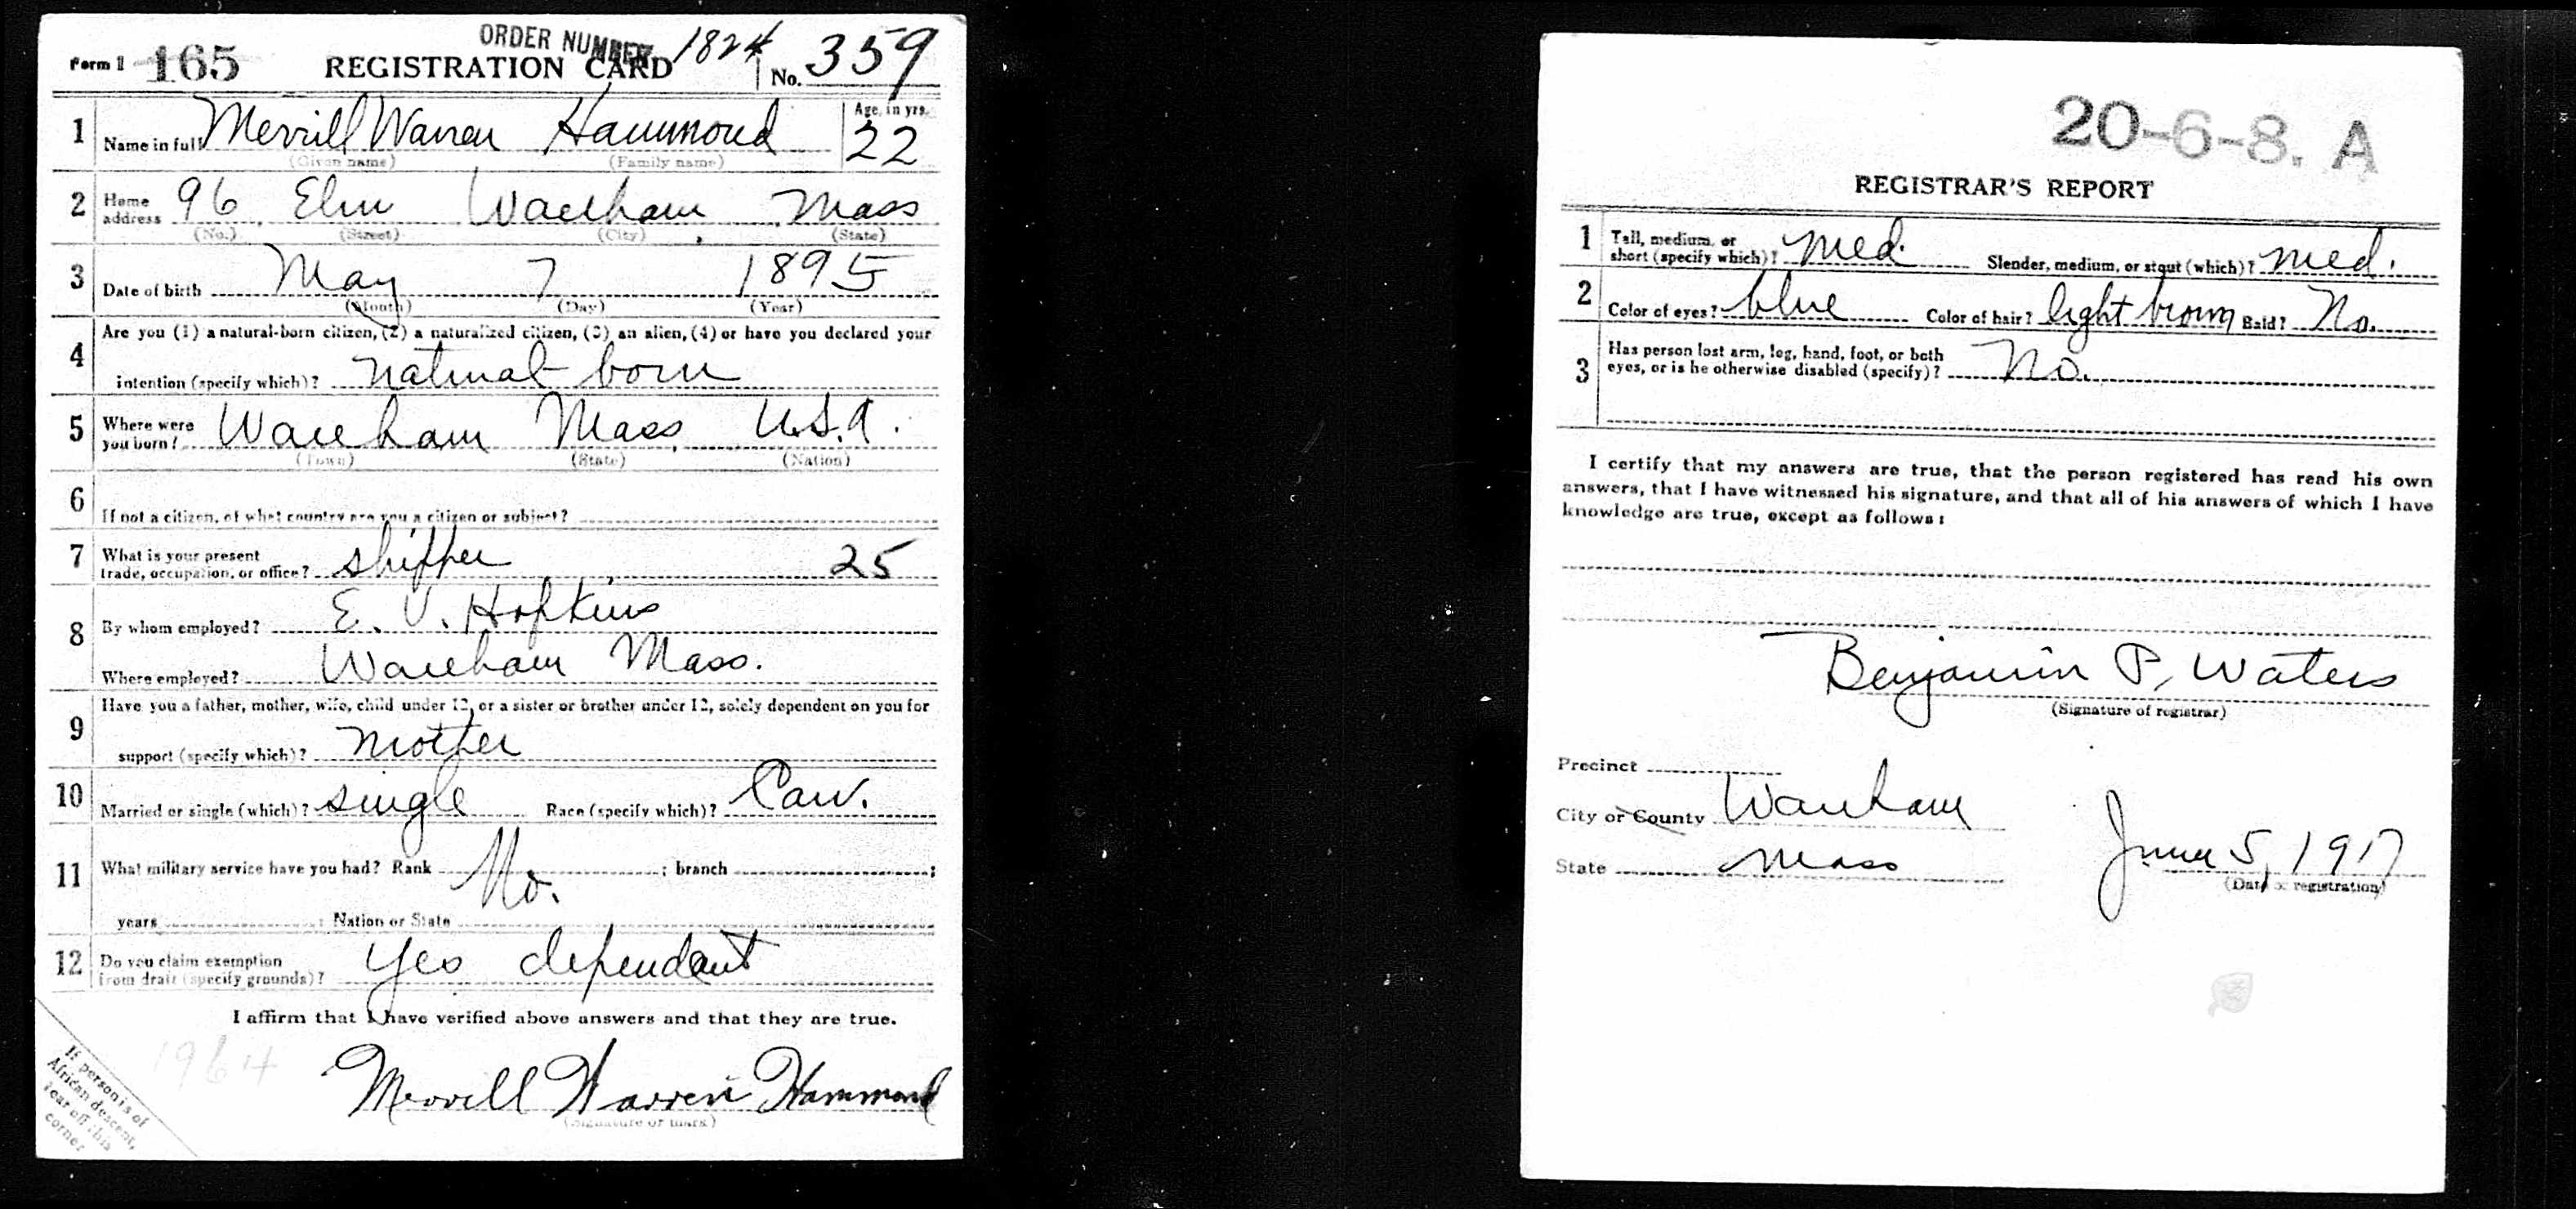 Form 1 165 REGISTRATION CARD ORDER NUMBER 1824 No. 359
1 Name in full Merrill Warren Hammond Age, in yrs. 22
(Given name) (Family name)
2 Home address 96 Elm Wareham Mass
(No.) (Street) (City) (State)
3 Date of birth May 7 1895
(Month) (Day) (Year)
4 Are you (1) a natural-born citizen, (2) a naturalized citizen, (3) an alien, (4) or have you declared your
intention (specify which)? natural born
5 Where were you born? Wareham Mass U.S.A.
(Town) (State) (Nation)
6 If not a citizen, of what country are you a citizen or subject?
7 What is your present
trade, occupation, or office? shipper 25
8 By whom employed? E. V. Hopkins
Where employed? Wareham Mass.
9 Have you a father, mother, wife, child under 12, or a sister or brother under 12, solely dependent on you for
support (specify which)? Mother
10 Married or single (which)? single Race (specify which)? Cau.
11 What military service have you had? Rank No. ; branch ;
years ; Nation or State
12 Do you claim exemption
from draft (specify grounds)? Yes dependant
I affirm that I have verified above answers and that they are true.
1964
Merrill Warren Hammond
(Signature or mark)
If person is of
African descent,
tear off this
corner
20-6-8. A
REGISTRAR'S REPORT
1 Tall, medium, or
short (specify which)? Med. Slender, medium, or stout (which)? Med.
2 Color of eyes? blue Color of hair? light brown Bald? No.
3 Has person lost arm, leg, hand, foot, or both
eyes, or is he otherwise disabled (specify)? No.
I certify that my answers are true, that the person registered has read his own
answers, that I have witnessed his signature, and that all of his answers of which I have
knowledge are true, except as follows:
Benjamin P. Waters
(Signature of registrar)
Precinct
City or County Wareham
State Mass June 5, 1917
(Date of registration)